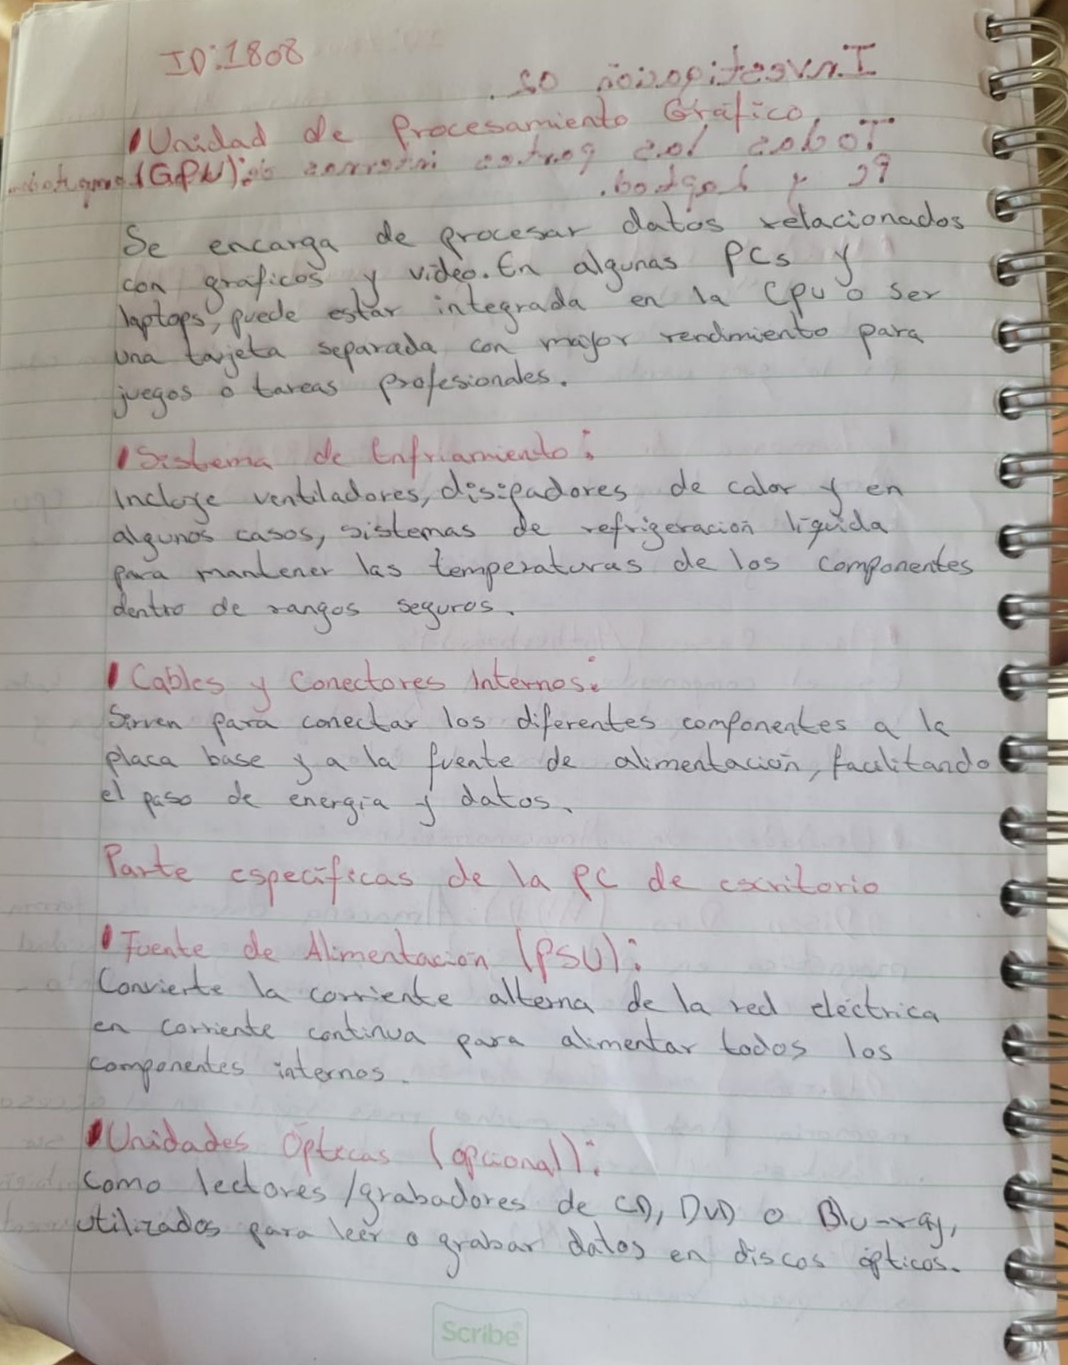 ID:1808
Unidad de Procesamiento Gráfico
(GPU):
Se encarga de procesar datos relacionados
con gráficos y video. En algunas PCs y
laptops, puede estar integrada en la CPU o ser
una tarjeta separada con mayor rendimiento para
juegos o tareas profesionales.
Sistema de Enfriamiento:
Incluye ventiladores, disipadores de calor y en
algunos casos, sistemas de refrigeración líquida
para mantener las temperaturas de los componentes
dentro de rangos seguros.
Cables y Conectores Internos:
Sirven para conectar los diferentes componentes a la
placa base y a la fuente de alimentación, facilitando
el paso de energía y datos.
Parte específicas de la PC de escritorio
Fuente de Alimentación (PSU):
Convierte la corriente alterna de la red eléctrica
en corriente continua para alimentar todos los
componentes internos.
Unidades Ópticas (opcional):
Como lectores/grabadores de CD, DVD o Blu-ray,
utilizados para leer o grabar datos en discos ópticos.
Scribe